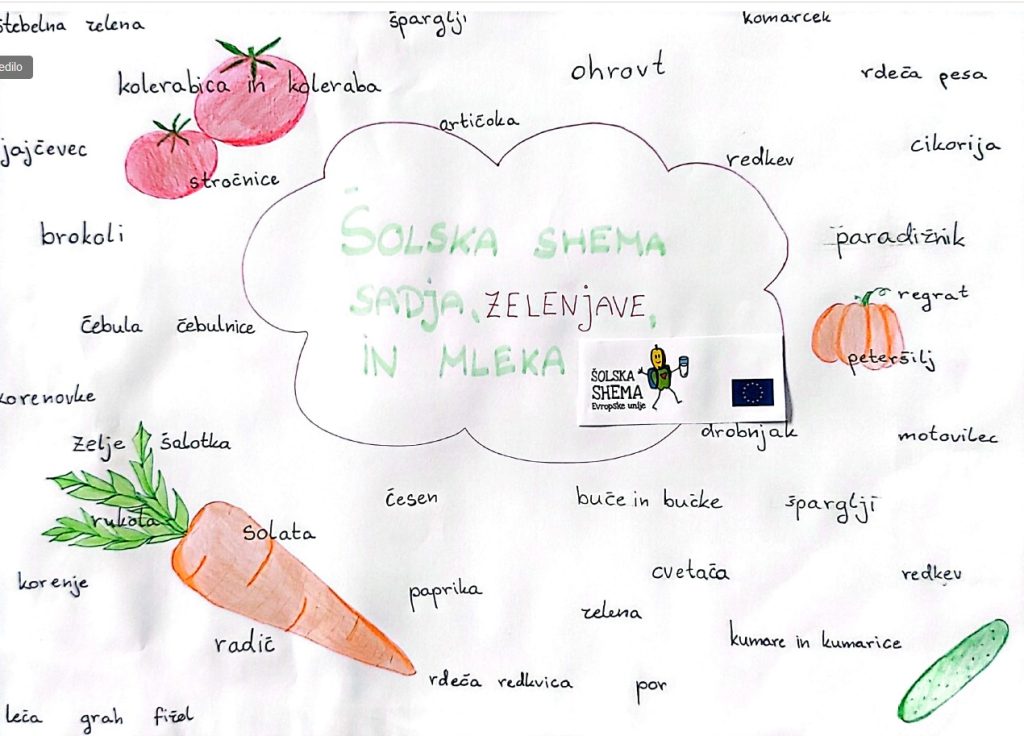 štebelna zelena
šparglji
komarček
edilo
ohrovt
rdeča pesa
kolerabica in koleraba
artičoka
jajčevec
redkev
cikorija
stročnice
brokoli
paradižnik
ŠOLSKA SHEMA
SADJA, ZELENJAVE,
IN MLEKA
regrat
čebula čebulnice
peteršilj
ŠOLSKA
SHEMA
Evropske unije
korenovke
drobnjak
motovilec
zelje šalotka
česen
buče in bučke
šparglji
rukola
solata
korenje
paprika
cvetača
redkev
zelena
radič
kumare in kumarice
rdeča redkvica
por
leča grah fižol